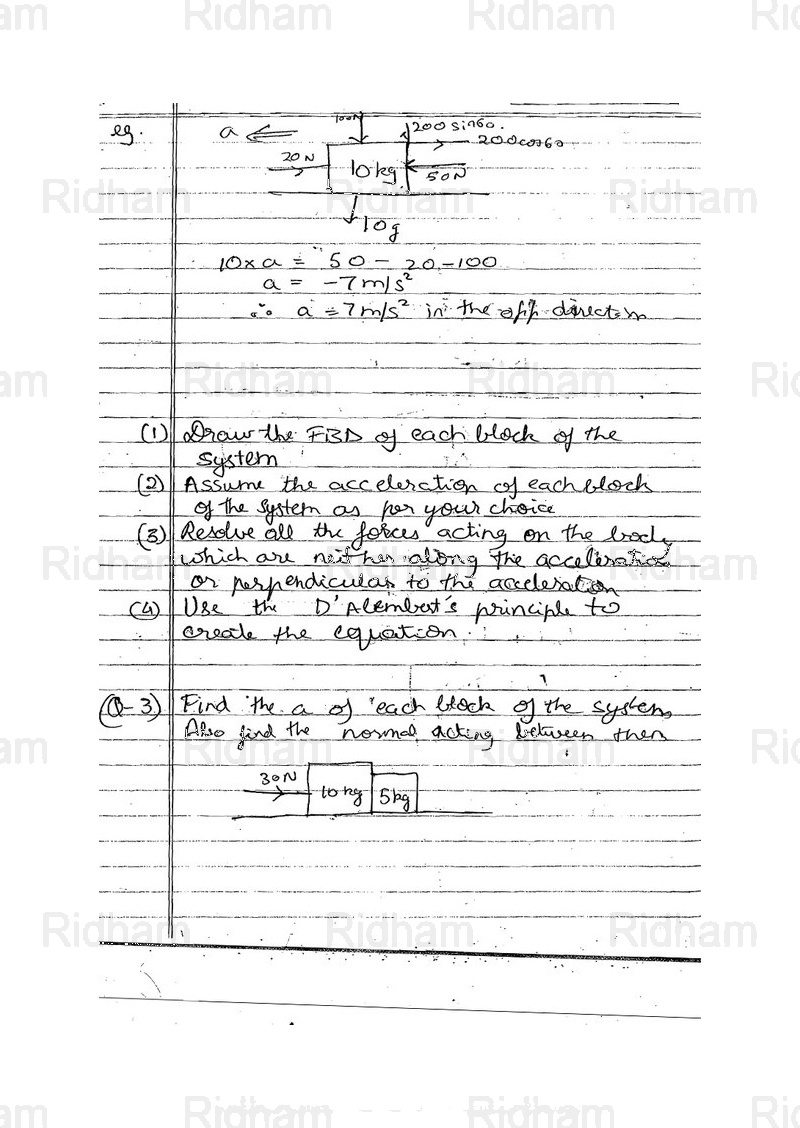 Ridham Ridham Ridham Ridham
eg.
a
100N
200 sin60.
200cos60
20N
10kg
50N
10g
10×a = 50 - 20 -100
a = -7 m/s²
∴ a = 7 m/s² in the opp direction
Ridham Ridham Ridham Ridham
(1) Draw the FBD of each block of the
system
(2) Assume the acceleration of each block
of the system as per your choice
(3) Resolve all the forces acting on the body
which are neither along the acceleration
or perpendicular to the acceleration
(4) Use the D'Alembert's principle to
create the equation.
Q-3) Find the a of each block of the system
Also find the normal acting between them
30N
10 kg
5kg
Ridham Ridham Ridham
Ridham Ridham Ridham Ridham